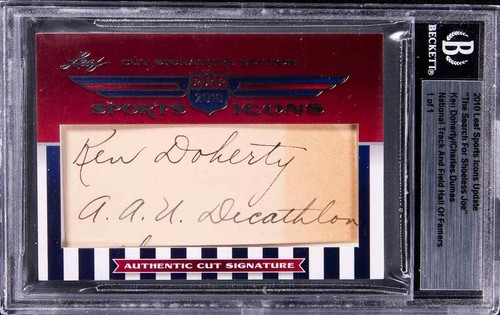 Leaf
CUT SIGNATURE EDITION
2019
SPORTS ICONS
Ken Doherty
A.A.U. Decathlon
AUTHENTIC CUT SIGNATURE
B
BECKETT®
2019 Leaf Sports Icons Update
"The Search For Shoeless Joe"
Ken Doherty/Charles Dumas
National Track And Field Hall Of Famers
1 of 1